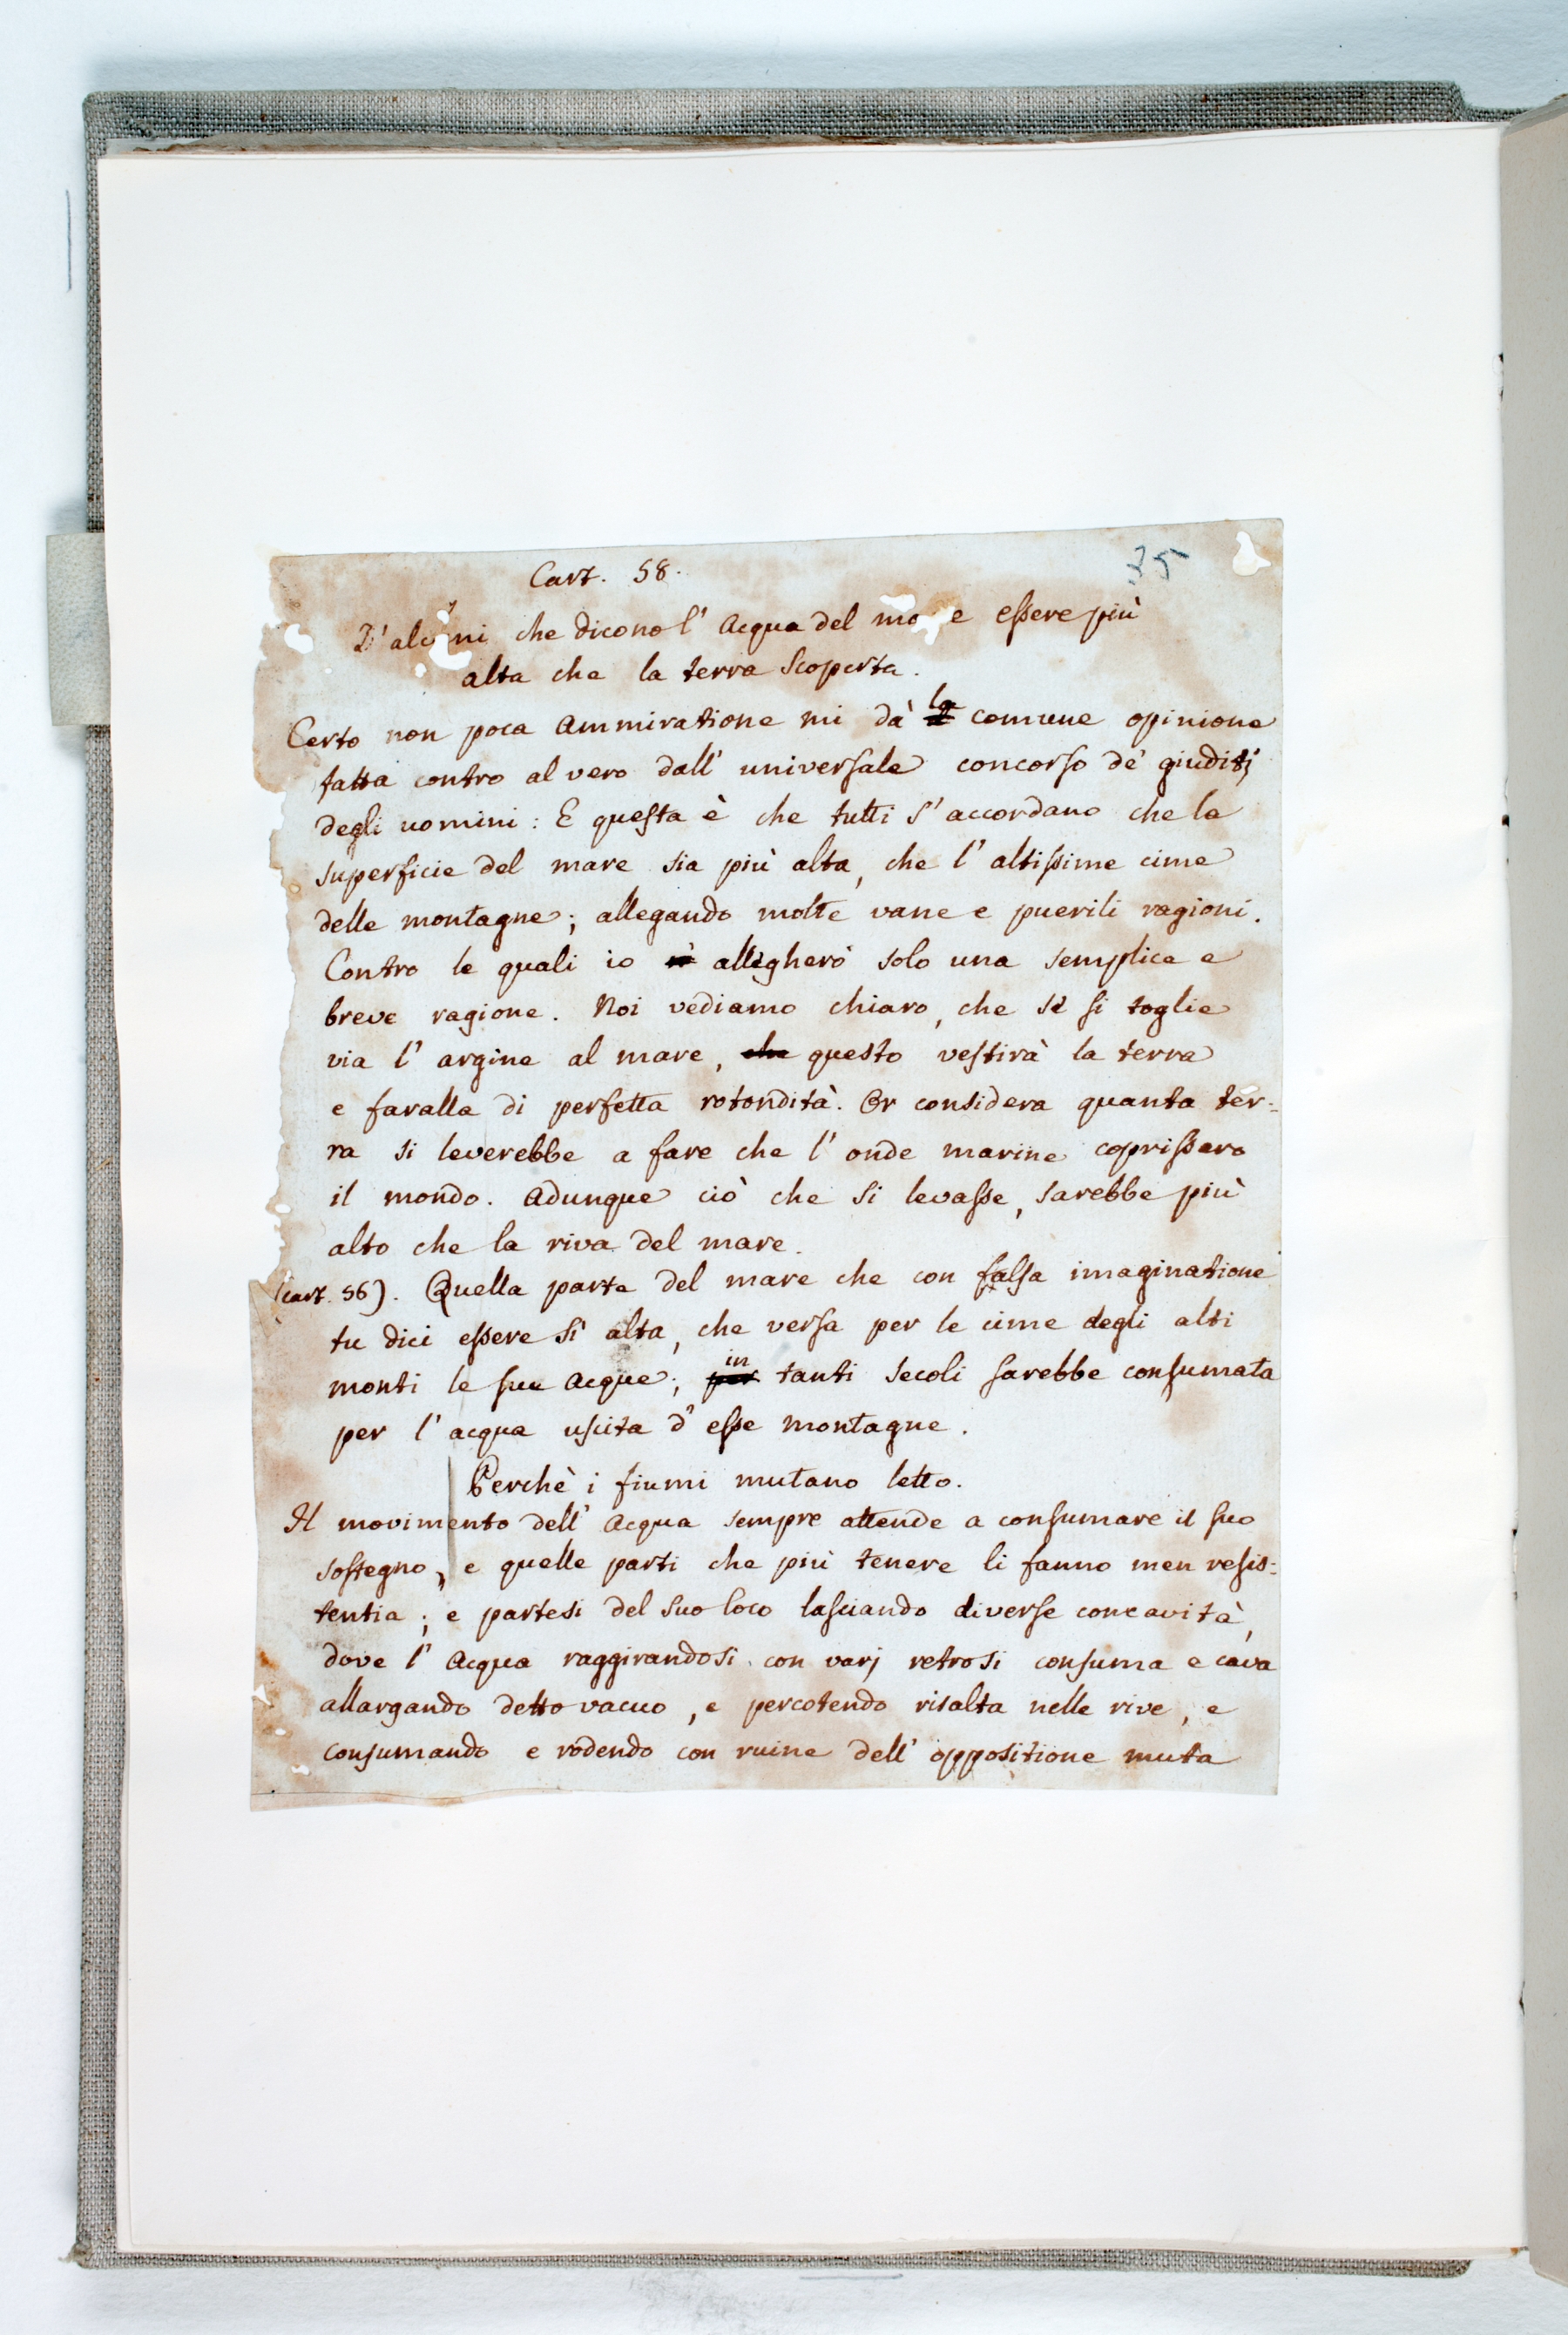 35
Cart. 58.
D'alcuni che dicono l'Acqua del mare essere più
alta che la terra scoperta.
Certo non poca ammiratione mi dà la comune opinione
fatta contro al vero dall' universale concorso de' giuditj
degli uomini: E questa è che tutti s'accordano che la
superficie del mare sia più alta, che l'altissime cime
delle montagne; allegando molte vane e puerili ragioni.
Contro le quali io allegherò solo una semplice e
breve ragione. Noi vediamo chiaro, che se si toglie
via l'argine al mare, che questo vestirà la terra
e faralla di perfetta rotondità. Or considera quanta ter=
ra si leverebbe a fare che l'onde marine coprissero
il mondo. Adunque ciò che si levasse, sarebbe più
alto che la riva del mare.
(cart. 56). Quella parte del mare che con falsa imaginatione
tu dici essere sì alta, che versa per le cime degli alti
monti le sue acque; per in tanti secoli sarebbe consumata
per l'acqua uscita d'esse montagne.
Perchè i fiumi mutano letto.
Il movimento dell' Acqua sempre attende a consumare il suo
sostegno, e quelle parti che più tenere li fanno men resis=
tentia; e partesi del suo loco lasciando diverse concavità,
dove l'Acqua raggirandosi con varj retrosi consuma e cava
allargando detto vacuo, e percotendo risalta nelle rive, e
consumando e rodendo con ruine dell' oppositione muta